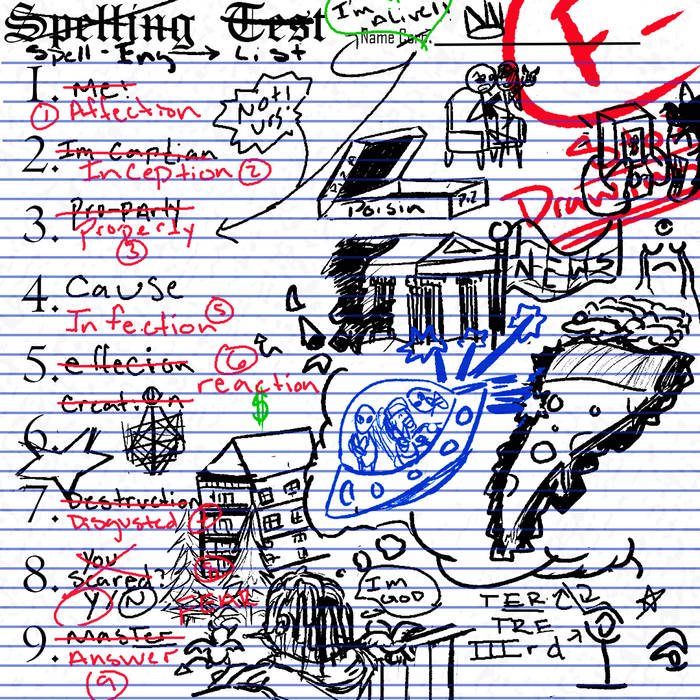 Spelling Test
I'm alive!!
Name
F-
Spell-Eng → List
1. Me!
① Affection
Not! Urs!
2. Im Caption
Inception ②
3. Pro-party
Properly
③
Poisin
P.2
Drawin
NEWS
4. Cause
Infection ⑤
5. effecion
⑥
reaction
creation
$
6.
7. Destruction
Disgusted
8. You
Scared?
Y/N
FEAR
Im GOD
TER
TRE
IIIrd
9. master
Answer
⑨